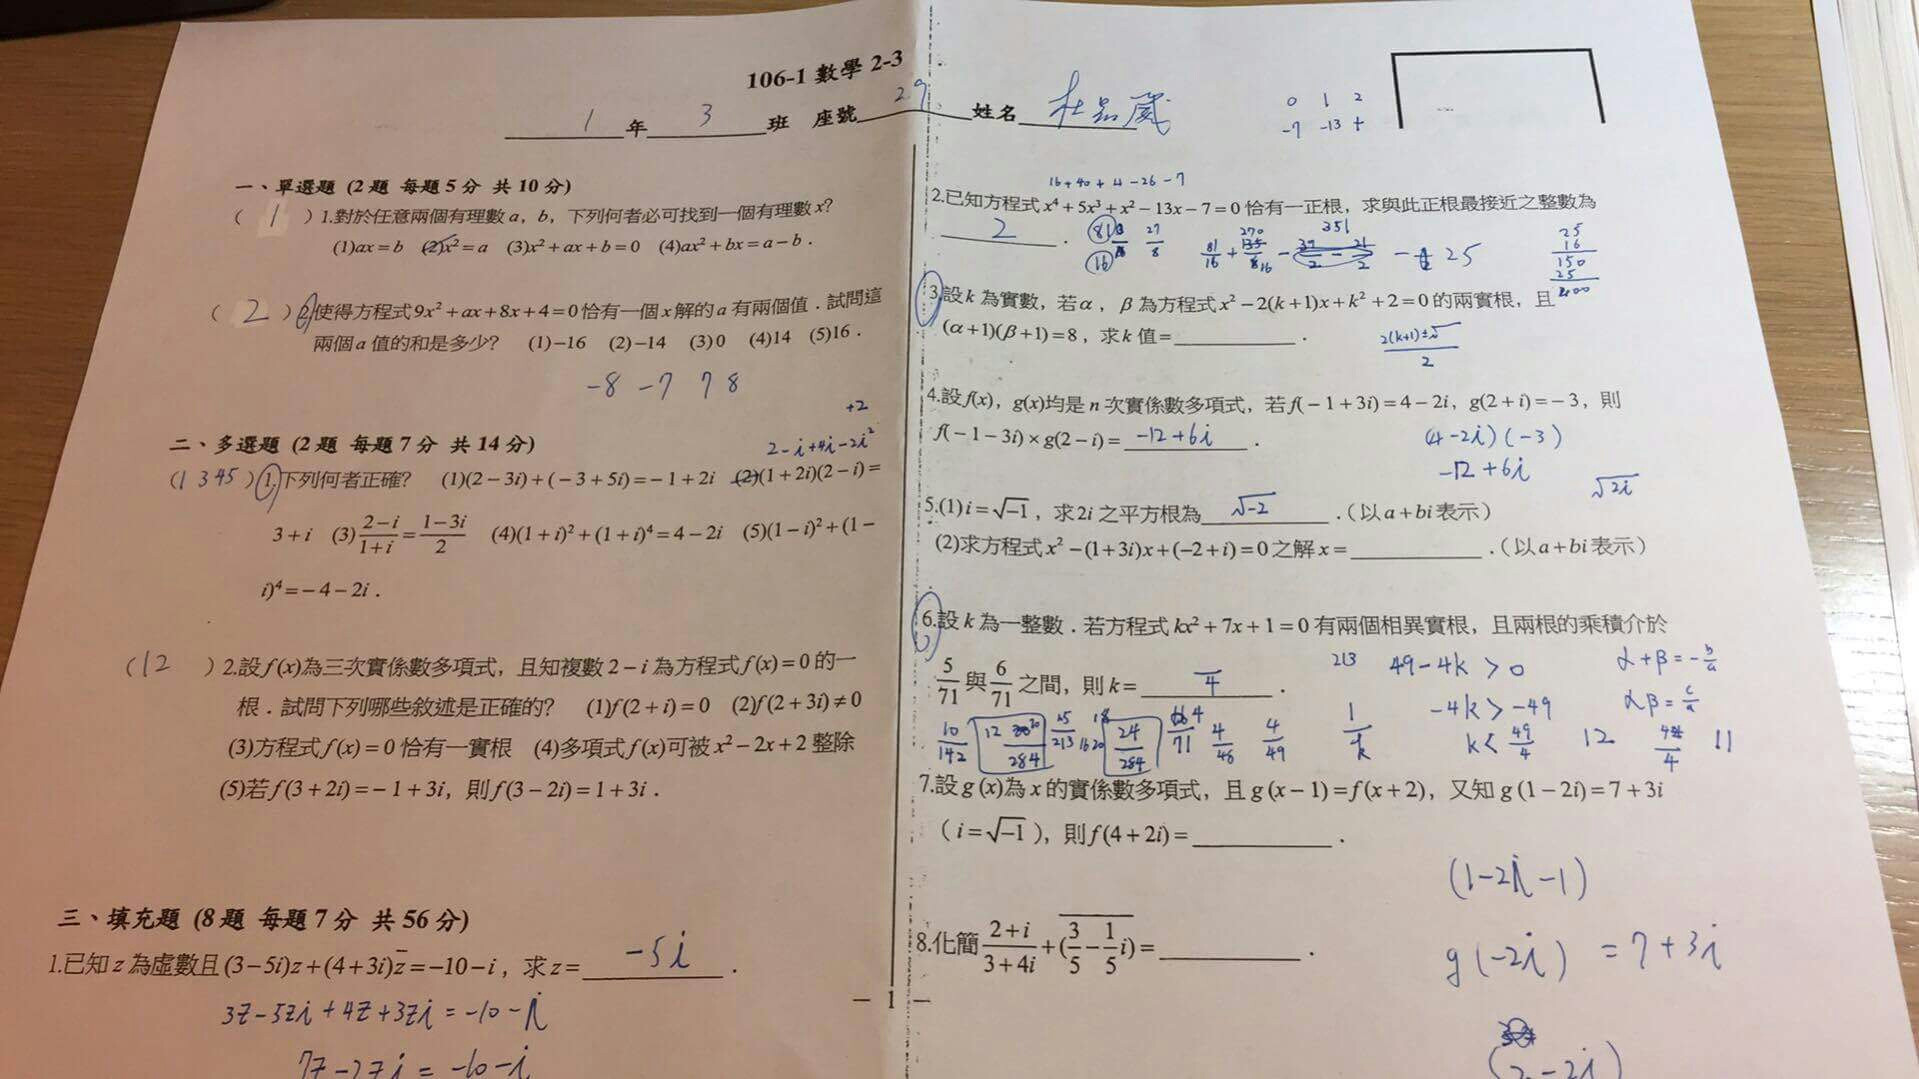 106-1 數學 2-3
1 年 3 班 座號 29 姓名
0 1 2
-7 -13 +
一、單選題 (2題 每題5分 共10分)
( 1 ) 1.對於任意兩個有理數 a，b，下列何者必可找到一個有理數 x?
(1)ax=b (2)x²=a (3)x²+ax+b=0 (4)ax²+bx=a-b．
( 2 ) 2.使得方程式9x²+ax+8x+4=0恰有一個 x 解的 a 有兩個值．試問這
兩個 a 值的和是多少? (1)-16 (2)-14 (3)0 (4)14 (5)16．
-8 -7 7 8
二、多選題 (2題 每題7分 共14分)
+2
2-i+4i-2i²
(1 3 4 5) 1.下列何者正確? (1)(2-3i)+(-3+5i)=-1+2i (2)(1+2i)(2-i)=
3+i (3)(2-i)/(1+i)=(1-3i)/2 (4)(1+i)²+(1+i)⁴=4-2i (5)(1-i)²+(1-
i)⁴=-4-2i．
(12 ) 2.設 f(x)為三次實係數多項式，且知複數 2-i 為方程式 f(x)=0 的一
根．試問下列哪些敘述是正確的? (1)f(2+i)=0 (2)f(2+3i)≠0
(3)方程式 f(x)=0 恰有一實根 (4)多項式 f(x)可被 x²-2x+2 整除
(5)若 f(3+2i)=-1+3i，則 f(3-2i)=1+3i．
三、填充題 (8題 每題7分 共56分)
1.已知 z 為虛數且 (3-5i)z+(4+3i)z̅=-10-i，求 z= -5i ．
3z-5zi+4z+3zi=-10-i
7z-2zi=-10-i
16+40+4-26-7
2.已知方程式 x⁴+5x³+x²-13x-7=0 恰有一正根，求與此正根最接近之整數為
2 ．
27/8
81/16 + 270/16
351
-25
25
16
150
25
400
3.設 k 為實數，若 α，β 為方程式 x²-2(k+1)x+k²+2=0 的兩實根，且
(α+1)(β+1)=8，求 k 值=．
2(k+1)±√
2
4.設 f(x)，g(x)均是 n 次實係數多項式，若 f(-1+3i)=4-2i，g(2+i)=-3，則
f(-1-3i)×g(2-i)= -12+6i ．
(4-2i)(-3)
-12+6i
√2i
5.(1)i=√-1，求2i 之平方根為 √-2 ．(以 a+bi 表示)
(2)求方程式 x²-(1+3i)x+(-2+i)=0 之解 x=．(以 a+bi 表示)
6.設 k 為一整數．若方程式 kx²+7x+1=0 有兩個相異實根，且兩根的乘積介於
5/71 與 6/71 之間，則 k= ．
213 49-4k>0 α+β=-b/a
-4k>-49 αβ=c/a
10/142 12 20/284 25/213 18 24/284 /71 4/46 4/49 1/k k<49/4 12 11
7.設 g (x)為 x 的實係數多項式，且 g (x-1)=f(x+2)，又知 g (1-2i)=7+3i
(i=√-1)，則 f(4+2i)=．
(1-2i-1)
8.化簡 (2+i)/(3+4i)+(3/5-1/5i)=．
g(-2i)=7+3i
－ 1 －
(2-2i)